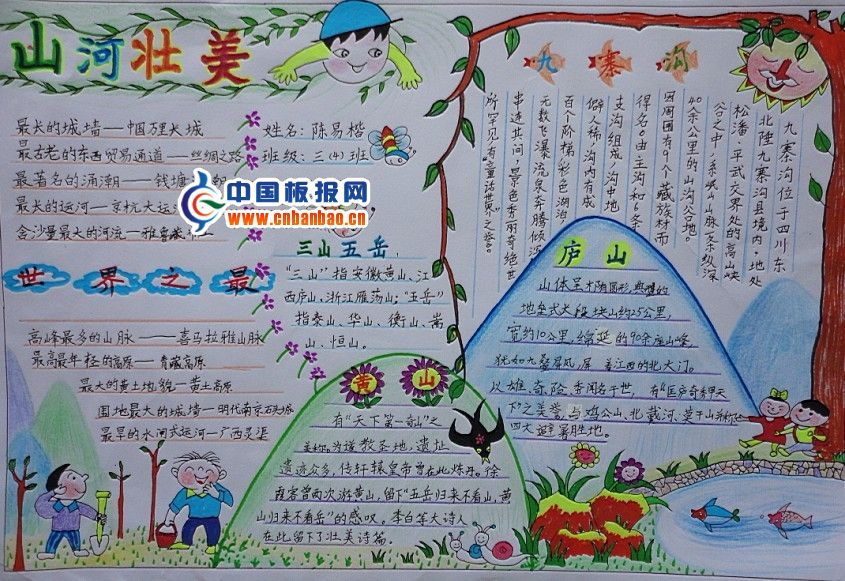 山河壮美
最长的城墙——中国万里长城
最古老的东西贸易通道——丝绸之路
最著名的涌潮——钱塘
最长的运河——京杭大运
含沙量最大的河流——雅鲁藏
姓名：陈易楷
班级：三(4)班
中国板报网
www.cnbanbao.cn
世界之最
高峰最多的山脉——喜马拉雅山脉
最高最年轻的高原——青藏高原
最大的黄土地貌——黄土高原
围地最大的城墙——明代南京石头城
最早的水闸式运河——广西灵渠
三山五岳
“三山”指安徽黄山、江
西庐山、浙江雁荡山；“五岳”
指泰山、华山、衡山、嵩
山、恒山。
黄山
有“天下第一奇山”之
美称。为道教圣地，遗址
遗迹众多，传轩辕皇帝曾在此炼丹。徐
霞客曾两次游黄山，留下“五岳归来不看山，黄
山归来不看岳”的感叹。李白等大诗人
在此留下了壮美诗篇
九寨沟
九寨沟位于四川东
北陆九寨沟县境内，地处
松潘、平武交界处的高山峡
谷之中，系岷山山脉支条纵深
40余公里的山沟谷地。
因周围有9个藏族村而
得名。由主沟和1条
支沟组成，沟中地
僻人稀，沟内有成
百个阶梯彩色湖泊
无数飞瀑流泉奔腾倾泻
串连其间，景色秀丽奇绝世
所罕见，有“童话世界”之誉。
庐山
山体呈椭圆形，典型的
地垒式大段块山约25公里，
宽约10公里，绵延的90余座山峰，
犹如九叠屏风，屏着江西的北大门。
以雄、奇、险、秀闻名于世，有“匡庐奇秀甲天
下”之美誉，与鸡公山、北戴河、莫干山并称
四大避暑胜地。